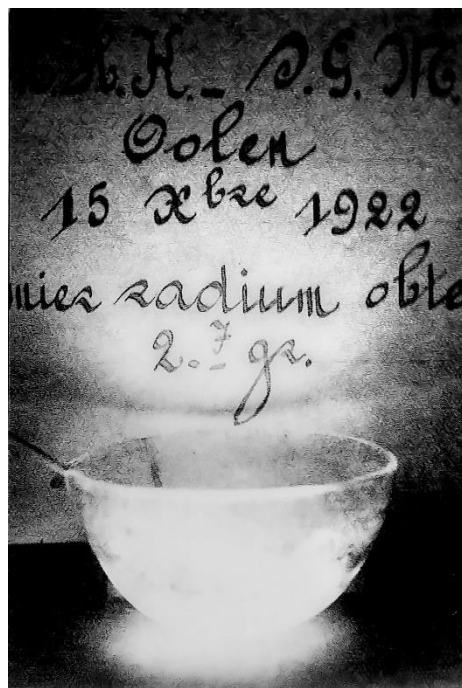 .H.K. - S.G.M.
Oolen
15 Xbre 1922
mier radium obte
2.7 gr.